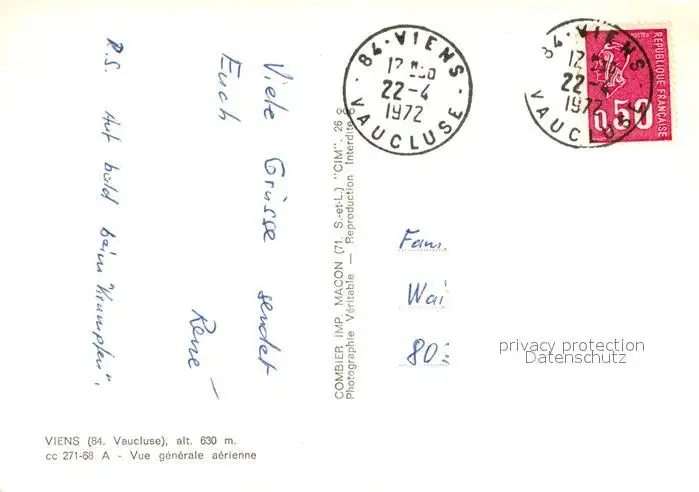 Viele Grüsse sendet
Euch
René
P.S. Auf bald beim "Krampfen".
VIENS (84. Vaucluse), alt. 630 m.
cc 271-68 A - Vue générale aérienne
COMBIER IMP. MACON (71. S.-et-L.) "CIM". 26 8
Photographie Véritable — Reproduction Interdite
84 · VIENS
22-4
1972
VAUCLUSE
84 · VIENS
22-4
1972
VAUCLUSE
POSTES
RÉPUBLIQUE FRANÇAISE
0,50
Fam.
Wai
80
privacy protection
Datenschutz